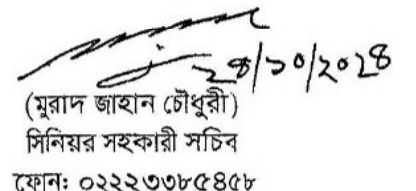 ২৪/১০/২০২৪
(মুরাদ জাহান চৌধুরী)
সিনিয়র সহকারী সচিব
ফোন: ০২২২৩৩৮৫৪৫৮